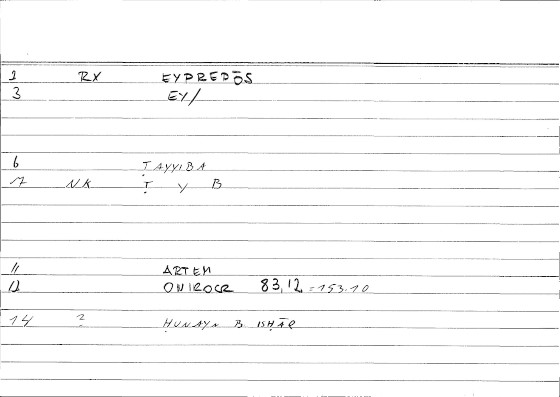 1 RX EYPREDŌS
3 EY/
6 ṬAYYIBA
7 NK Ṭ Y B
11 ARTEM
12 ONIROCR 83,12 = 153.10
14 ? ḤUNAYN B ISḤĀQ